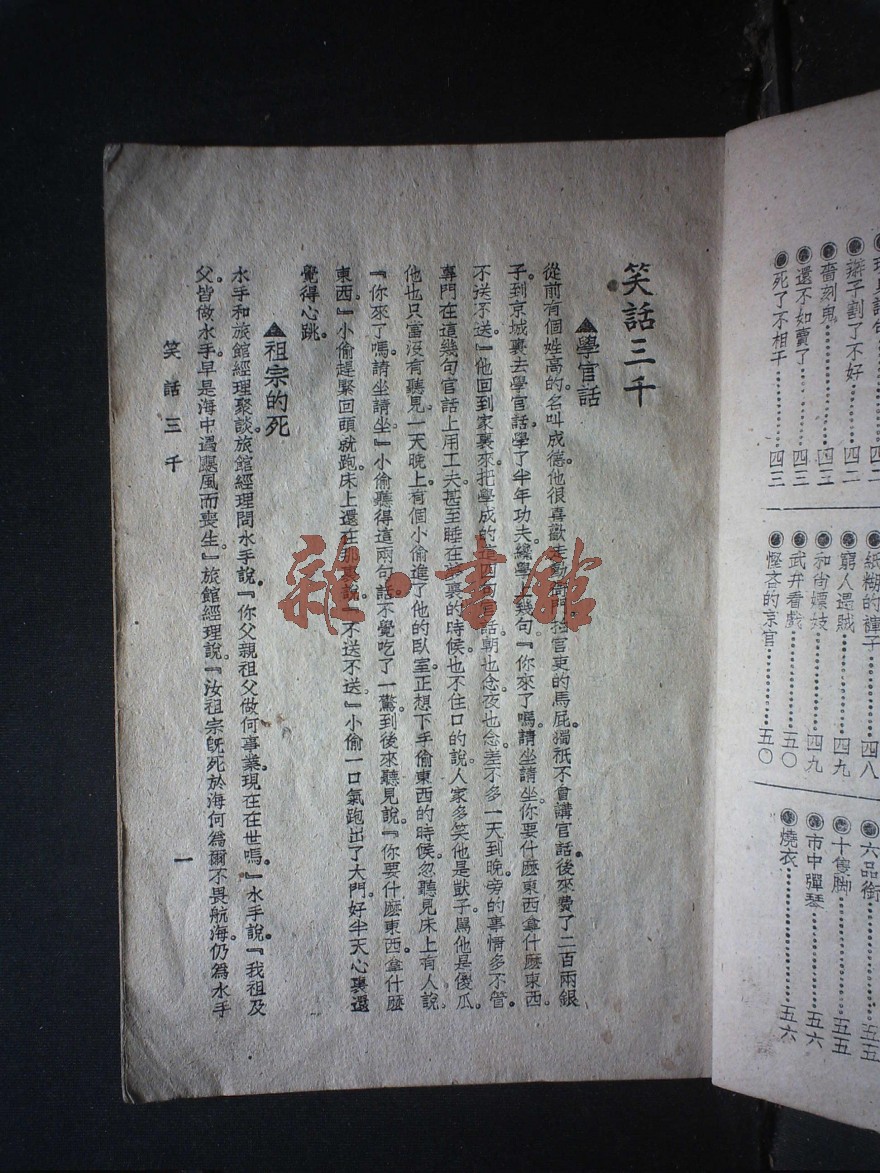 笑話三千
▲學官話
從前有個姓高的。名叫成德。他很喜歡走動衙門。拍官吏的馬屁。獨祇不會講官話。後來費了二百兩銀
子。到京城裏去學官話。學了半年功夫。纔學了幾句『你來了嗎。請坐請坐。你要什麽東西。拿什麽東西。
不送不送。』他回到家裏來。把學成的 官話。朝也念。夜也念。差不多一天到晚。旁的事情多不管。
專門在這幾句官話上用工夫。甚至睡在 裏的時候。也不住口的說。人家多笑他是獃子。罵他是傻瓜。
他也只當沒有聽見。一天晚上。有個小偷進了他的臥室。正想下手偷東西的時候。忽聽見床上有人說。
『你來了嗎。請坐請坐』小偷聽得這兩句話。不覺吃了一驚。到後來聽見說。『你要什麽東西。拿什麽
東西。』小偷趕緊回頭就跑。床上還在那裏說。『不送不送』小偷一口氣跑出了大門。好半天心裏還
覺得心跳。
▲祖宗的死
水手和旅館經理聚談。旅館經理問水手說。『你父親祖父做何事業。現在在世嗎。』水手說。『我祖及
父。皆做水手。早是海中遇颶風而喪生。』旅館經理說。『汝祖宗旣死於海。何爲爾不畏航海。仍爲水手
笑話三千
一
雜·書館
辮子割了不好……四二
嗇刻鬼……四三
還不如賣了……四三
死了不相干……四三
紙糊的褲子……四八
窮人遇賊……四九
和尙嫖妓……四九
武弁看戲……五〇
慳吝的京官……五〇
六品銜……五五
十隻脚……五五
市中彈琴……五六
燒衣……五六